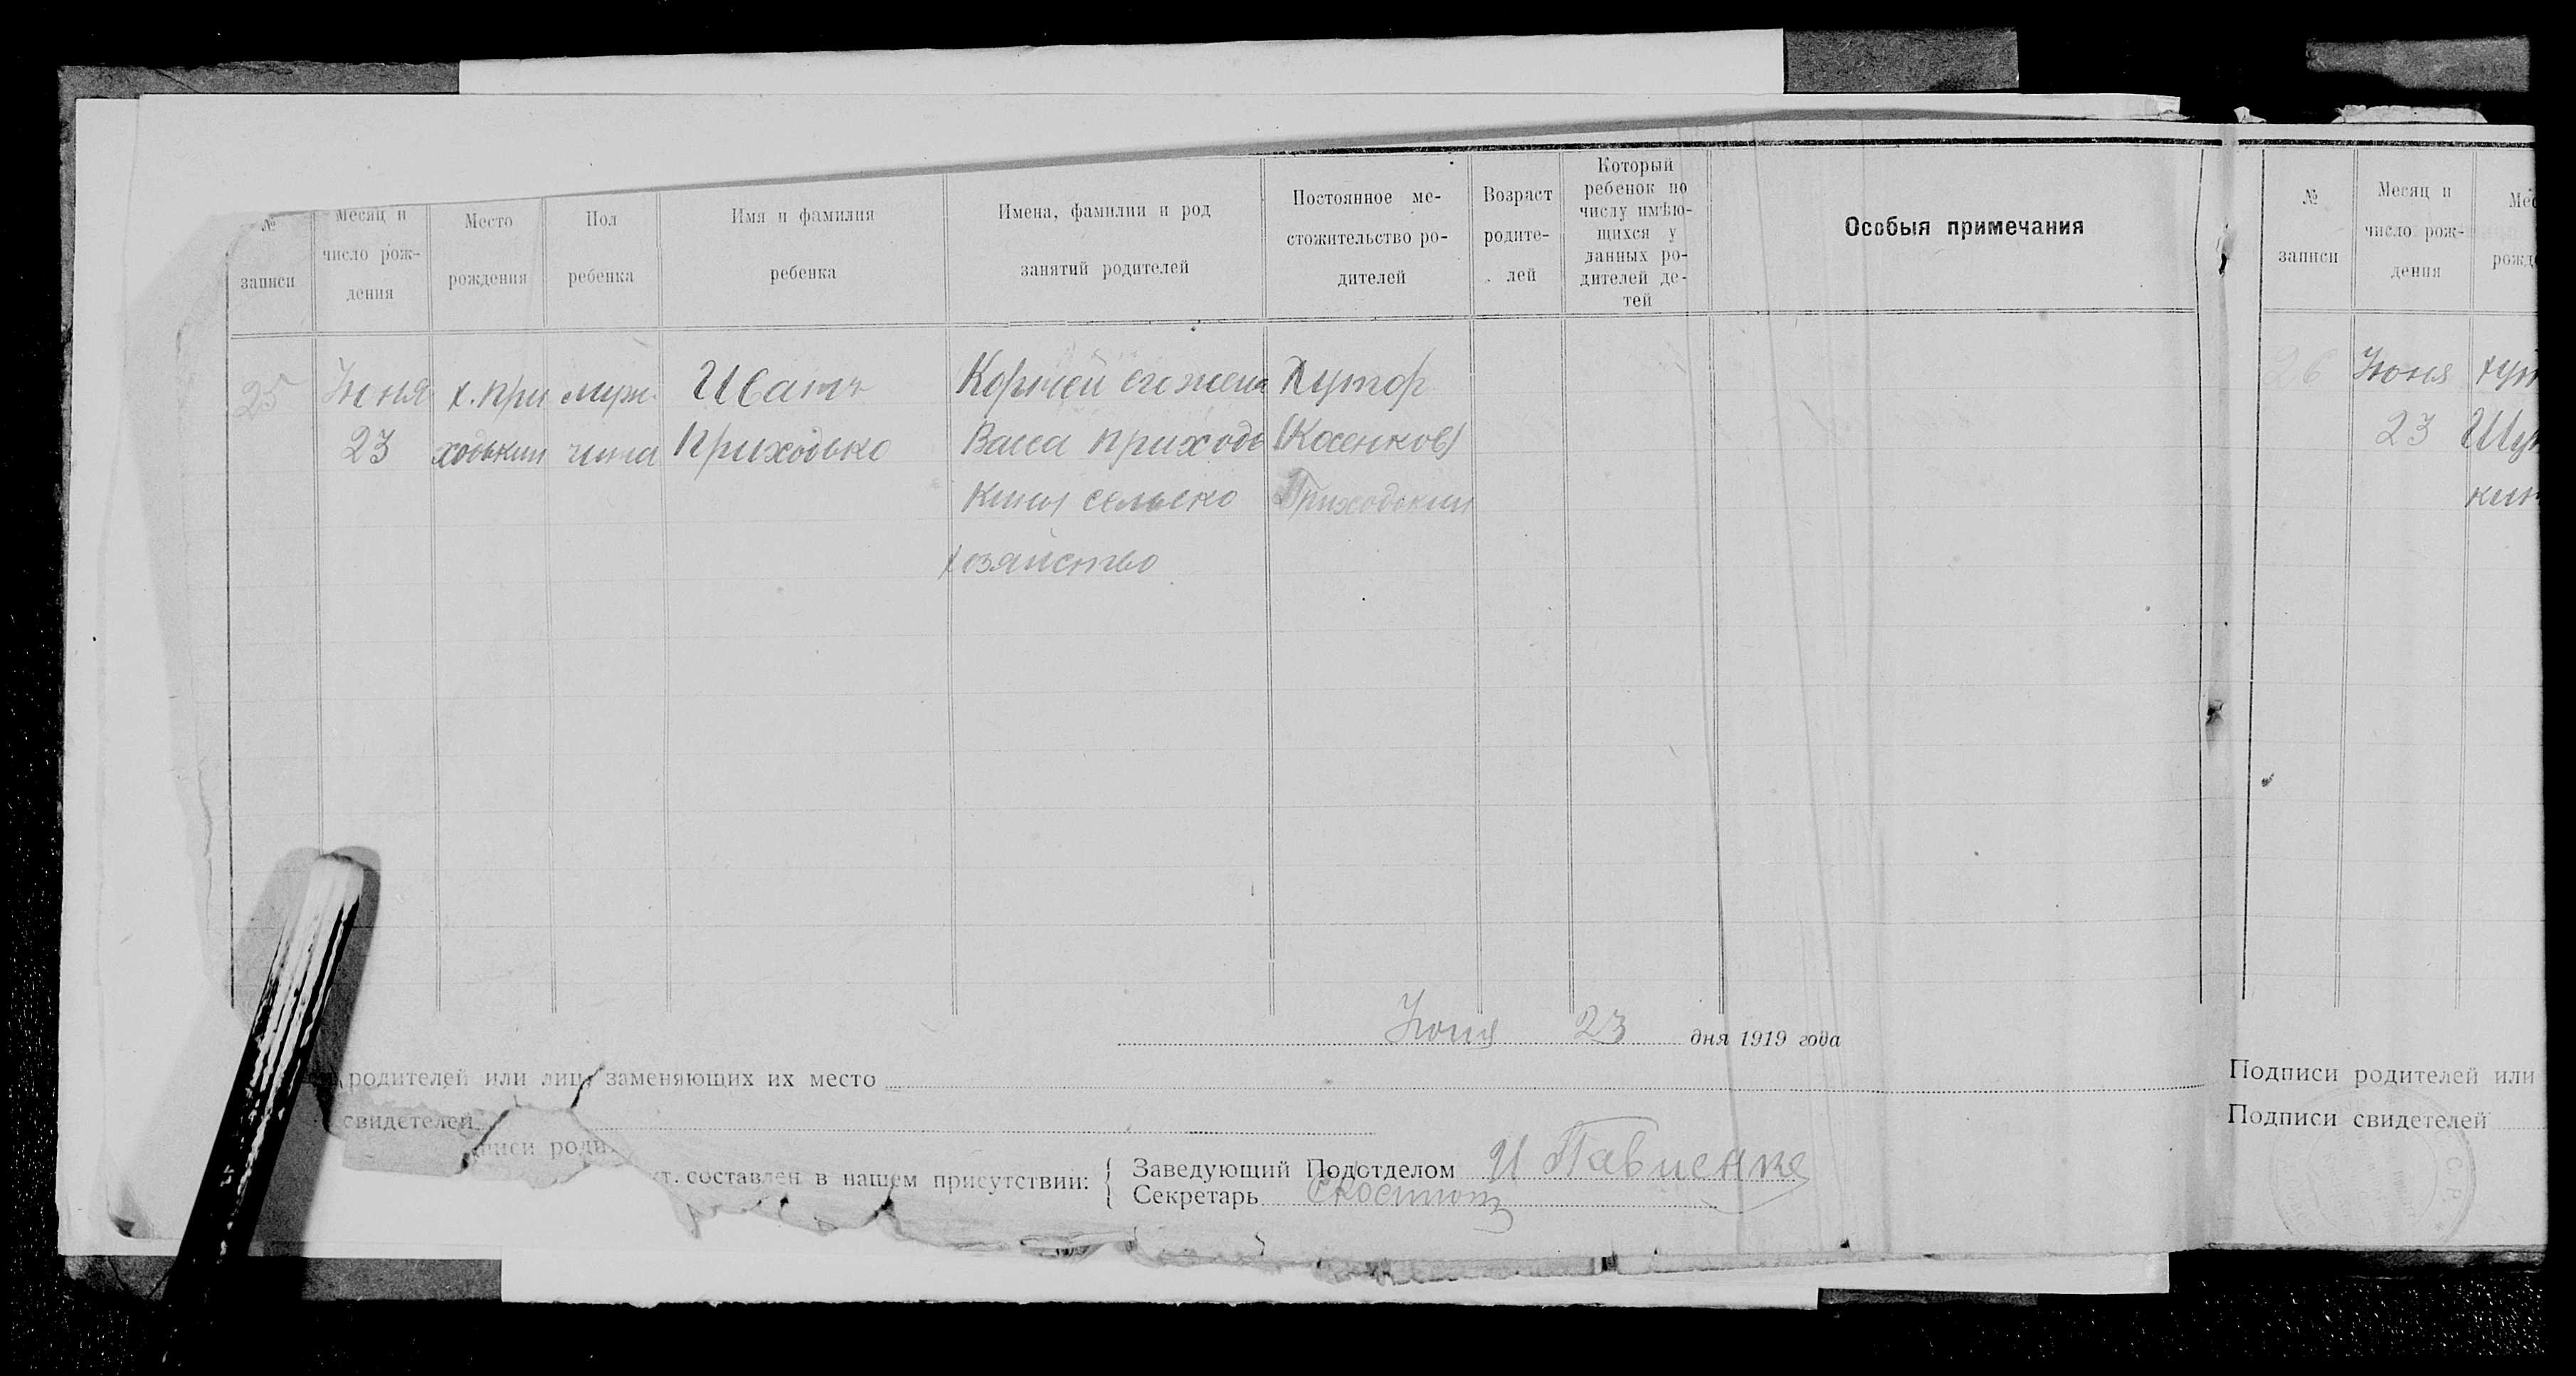 № записи
Месяц и число рож-
дения
Место рождения
Пол ребенка
Имя и фамилия ребенка
Имена, фамилии и род занятий родителей
Постоянное ме-
стожительство ро-
дителей
Возраст
родите-
лей
Который
ребенок по
числу имѣю-
щихся у
данных ро-
дителей де-
тей
Особыя примечания
25
Июня
23
х. При
ходькин
муж.
чина
Иван
Приходько
Корней его жена
Васса Приходь
кины сельско
хозяйство
Хутор
(Косенков)
Приходькин
Июня 23 дня 1919 года
родителей или лиц, заменяющих их место
свидетелей
писи роди
кт. составлен в нашем присутствии:
Заведующий Подотделом И Павленко
Секретарь
№
записи
Месяц и
число рож-
дения
Мес
рожд
26
Июня
23
хут
Шу
кин
Подписи родителей или
Подписи свидетелей
С.Р.